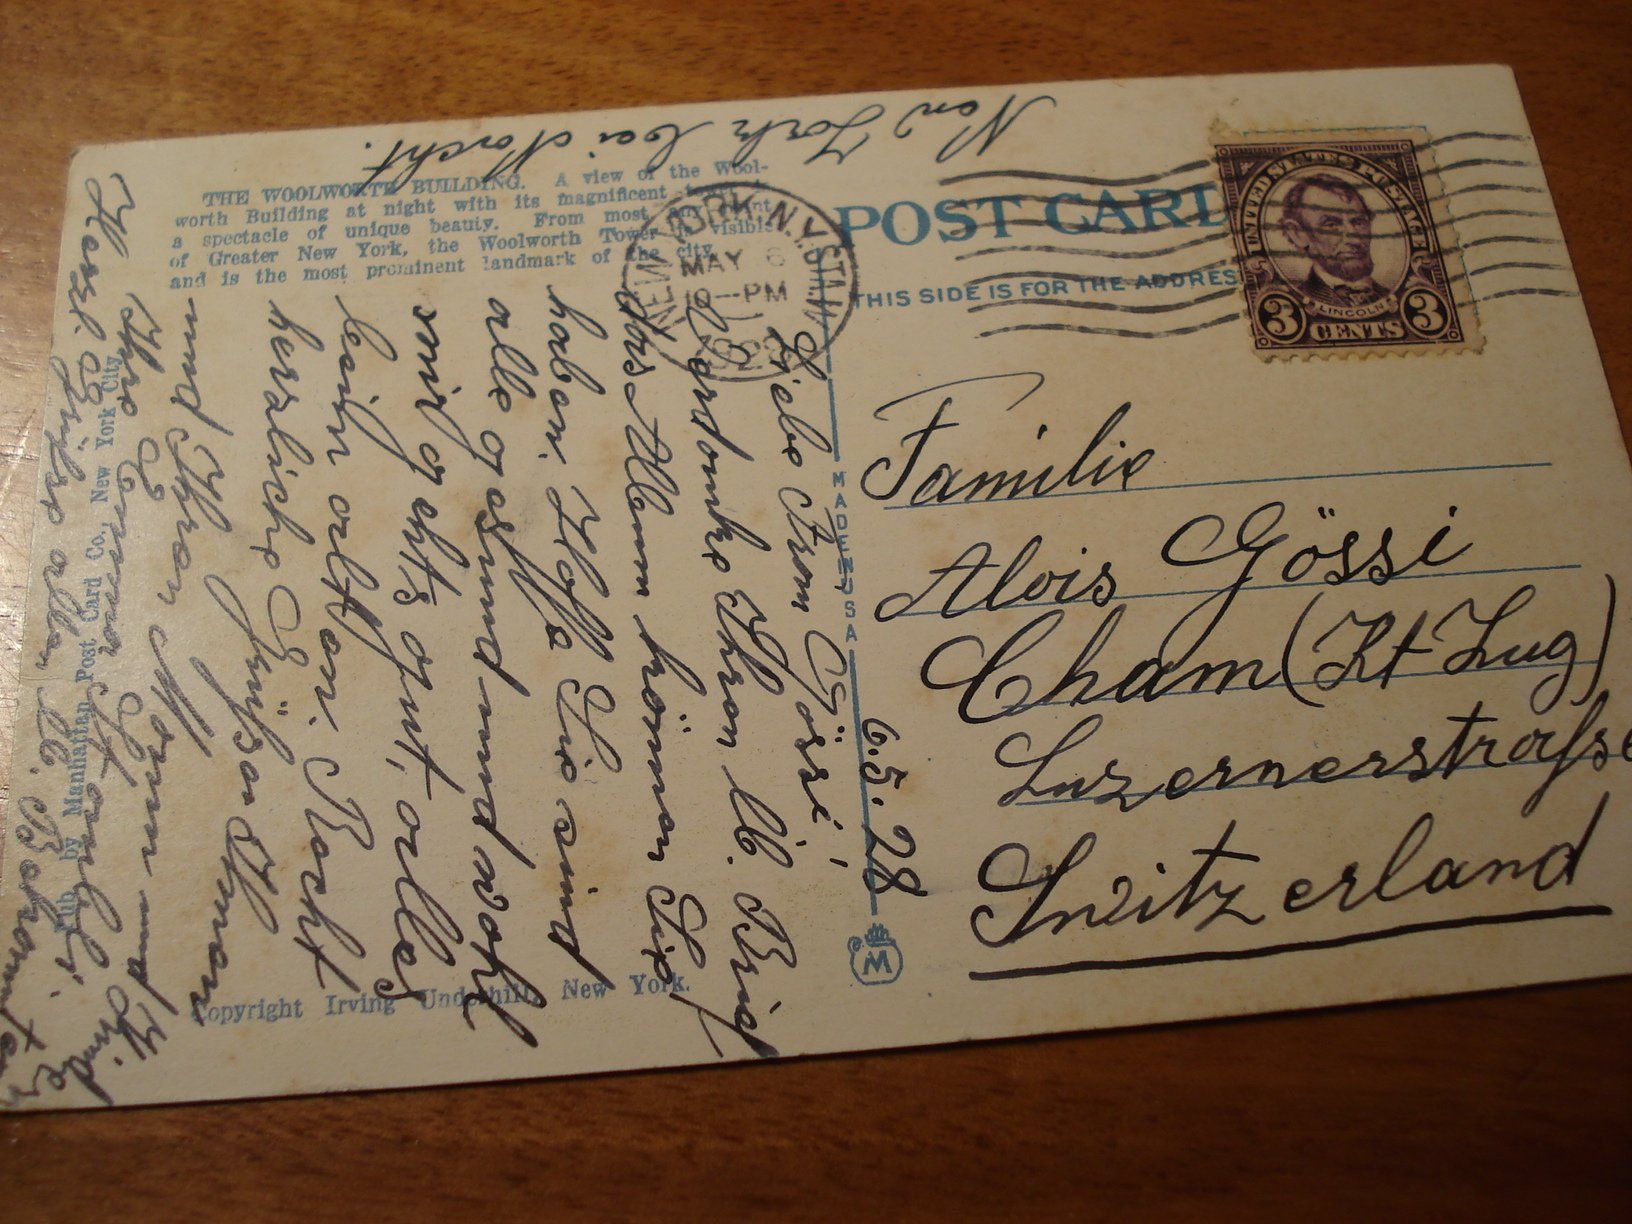 New York bei Nacht.
THE WOOLWORTH BUILDING. A view of the Wool-
worth Building at night with its magnificent tower
a spectacle of unique beauty. From most
of Greater New York, the Woolworth Tower is visible
and is the most prominent landmark of the city.
POST CARD
THIS SIDE IS FOR THE ADDRESS
NEW YORK, N.Y.
STA.
MAY 6
10-PM
1928
UNITED STATES POSTAGE
LINCOLN
3 CENTS 3
MADE IN USA
6.5.28
Familie
Alois Gössi
Cham (Kt Zug)
Luzernerstrasse
Switzerland
M
Liebe Frau Gössi,
Verdanke Ihren lb. Brief
Das Album können Sie
haben. Hoffe Sie sind
alle gesund und wohl
mir geht's gut, alles
beim alten. Recht
herzliche Grüße Ihnen
und Ihren Mann und Kinder
Ihre Emma Stämpfli.
Herzl. Grüße allen lb. Bekannten
Pub. by Manhattan Post Card Co., New York City
Copyright Irving Underhill, New York.